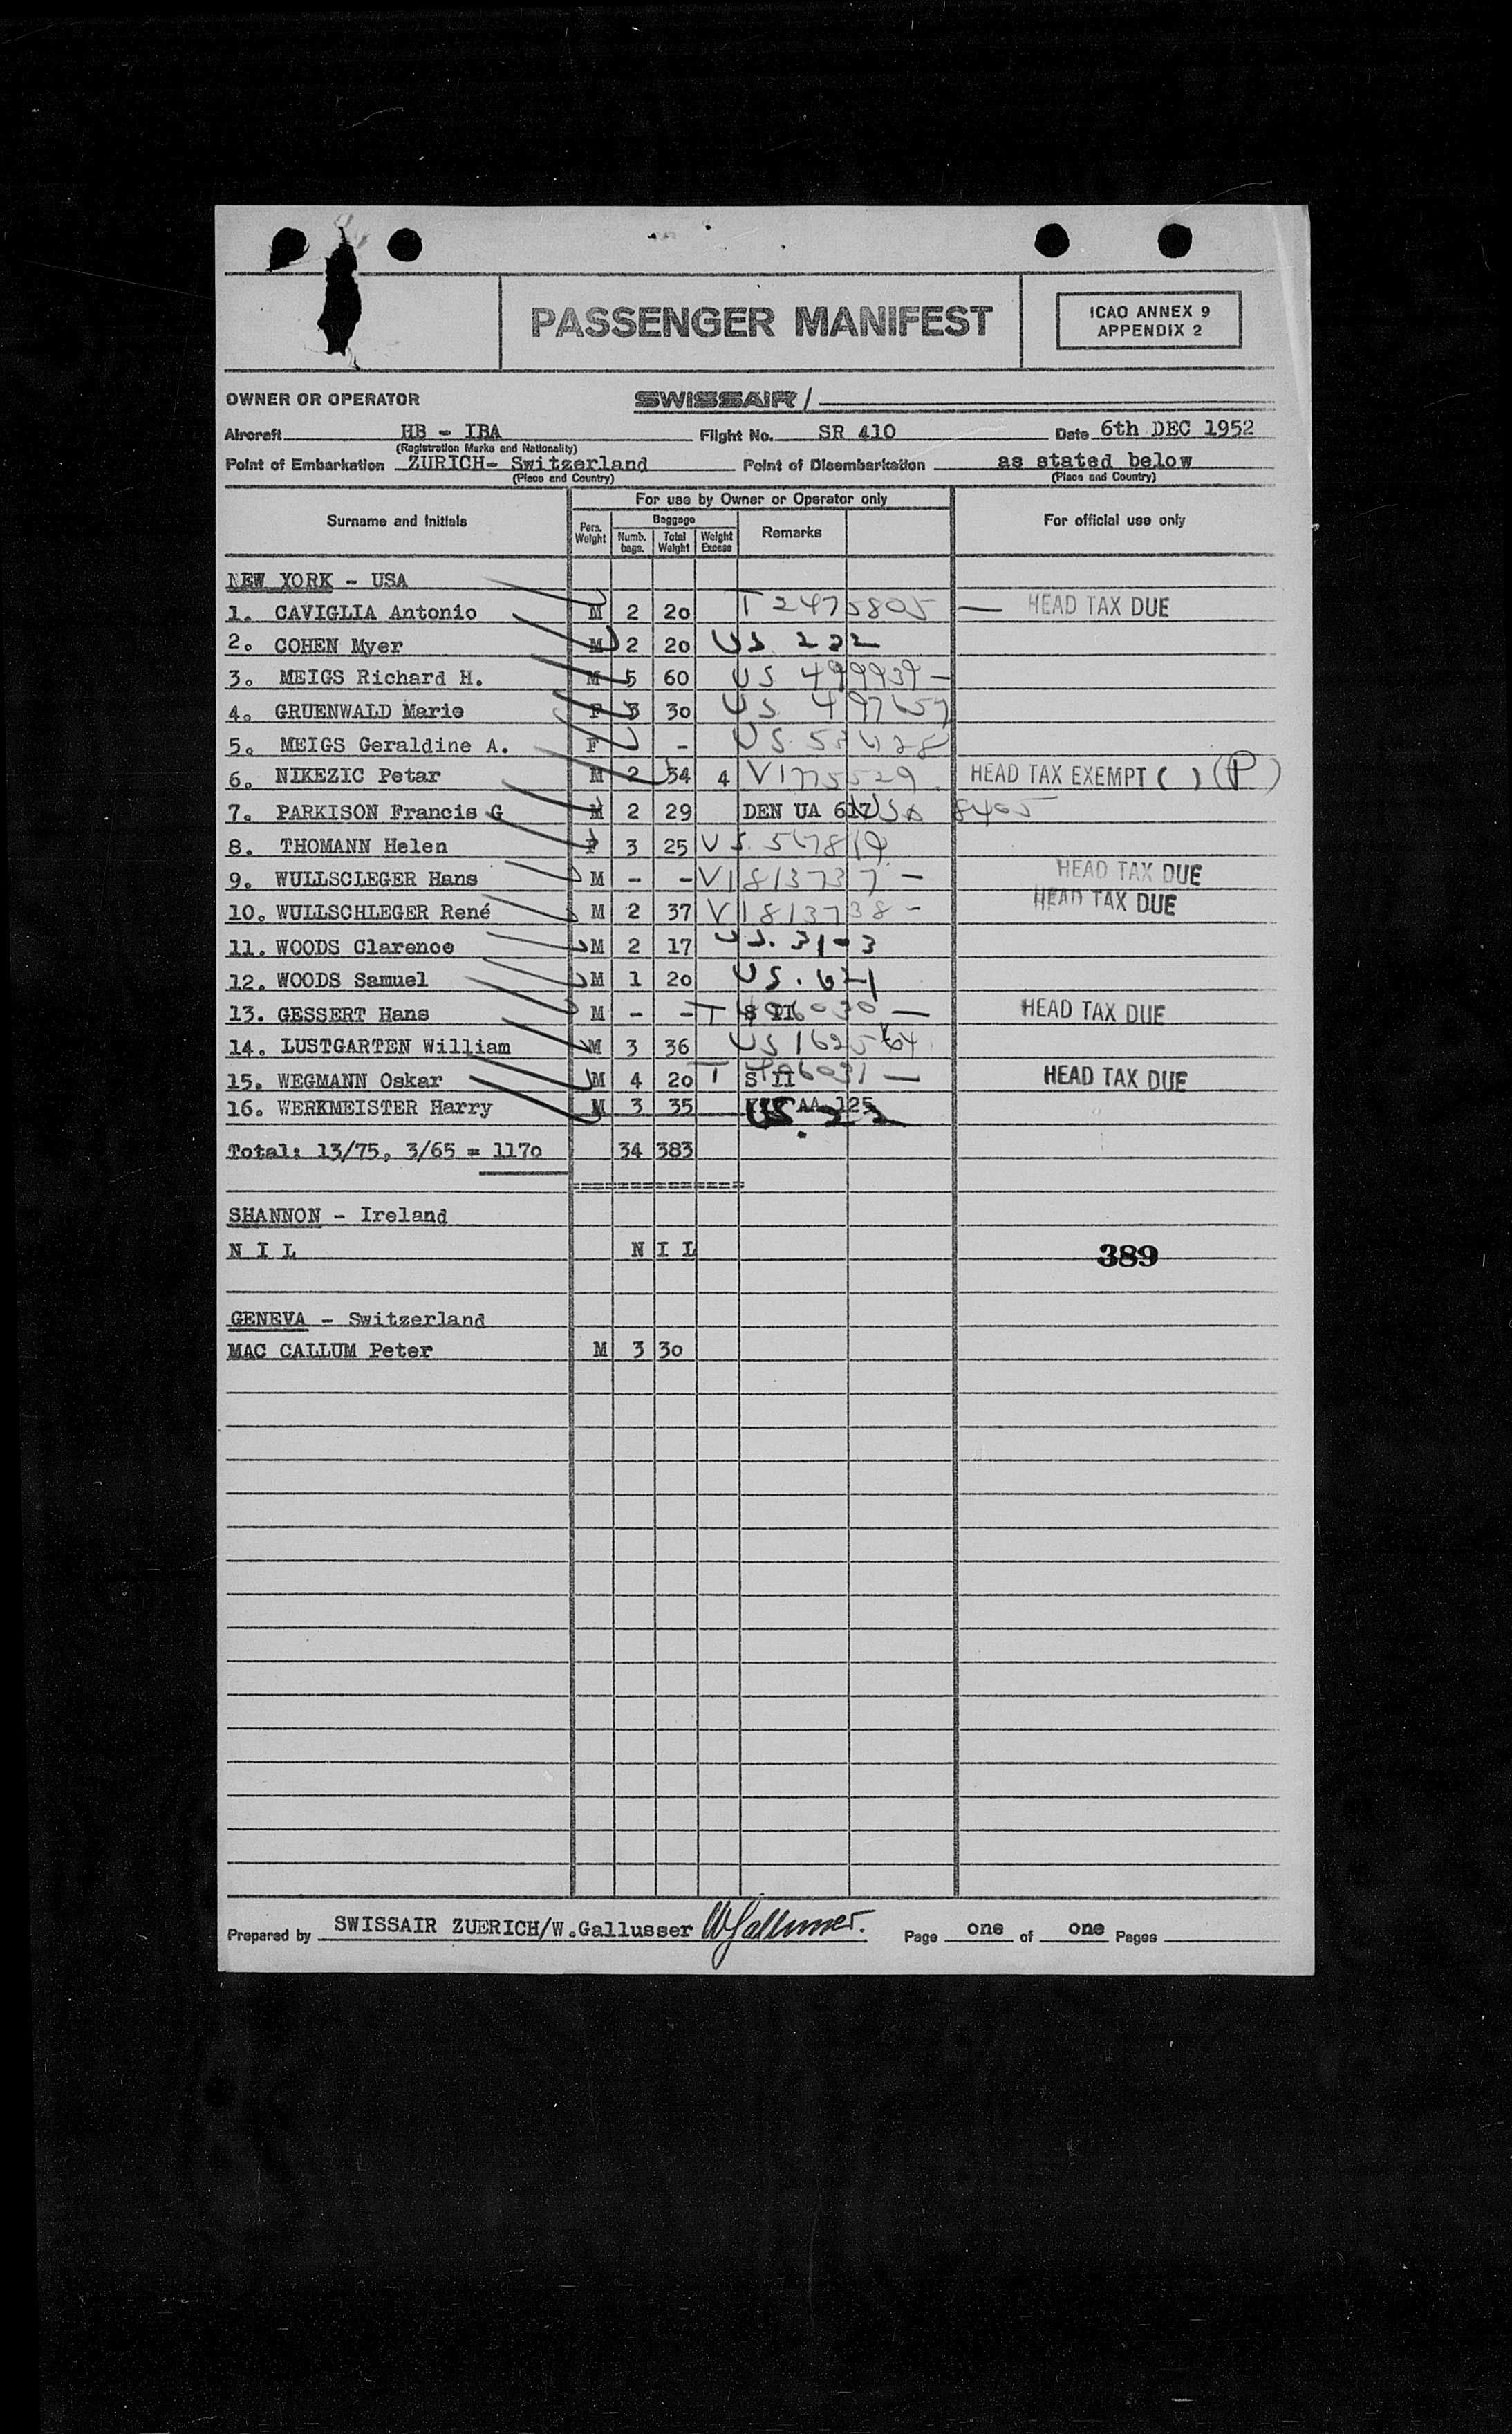 PASSENGER MANIFEST
ICAO ANNEX 9
APPENDIX 2
OWNER OR OPERATOR SWISSAIR/
Aircraft HB - IBA Flight No. SR 410 Date 6th DEC 1952
(Registration Marks and Nationality)
Point of Embarkation ZURICH- Switzerland Point of Disembarkation as stated below
(Place and Country) (Place and Country)
For use by Owner or Operator only
Surname and Initials Pers. Weight Baggage Numb. bags. Total Weight Weight Excess Remarks For official use only
NEW YORK - USA
1. CAVIGLIA Antonio M 2 20 T 2475805 — HEAD TAX DUE
2. COHEN Myer M 2 20 US 222
3. MEIGS Richard H. M 5 60 US 499939 -
4. GRUENWALD Marie F 3 30 US 497657
5. MEIGS Geraldine A. F - US
6. NIKEZIC Petar M 2 34 4 V1775529 HEAD TAX EXEMPT ( ) (P)
7. PARKISON Francis G M 2 29 DEN UA 617 8405
8. THOMANN Helen F 3 25 US. 567819
9. WULLSCLEGER Hans M - - V1813737 - HEAD TAX DUE
10. WULLSCHLEGER René M 2 37 V1813738 - HEAD TAX DUE
11. WOODS Clarence M 2 17 US. 31-3
12. WOODS Samuel M 1 20 US. 621
13. GESSERT Hans M - - T S II — HEAD TAX DUE
14. LUSTGARTEN William M 3 36 US 162564
15. WEGMANN Oskar M 4 20 T S II — HEAD TAX DUE
16. WERKMEISTER Harry M 3 35 AA 125 US. 22
Total: 13/75, 3/65 = 1170 34 383
==============
SHANNON - Ireland
N I L N I L 389
GENEVA - Switzerland
MAC CALLUM Peter M 3 30
Prepared by SWISSAIR ZUERICH/W.Gallusser WGallusser. Page one of one Pages